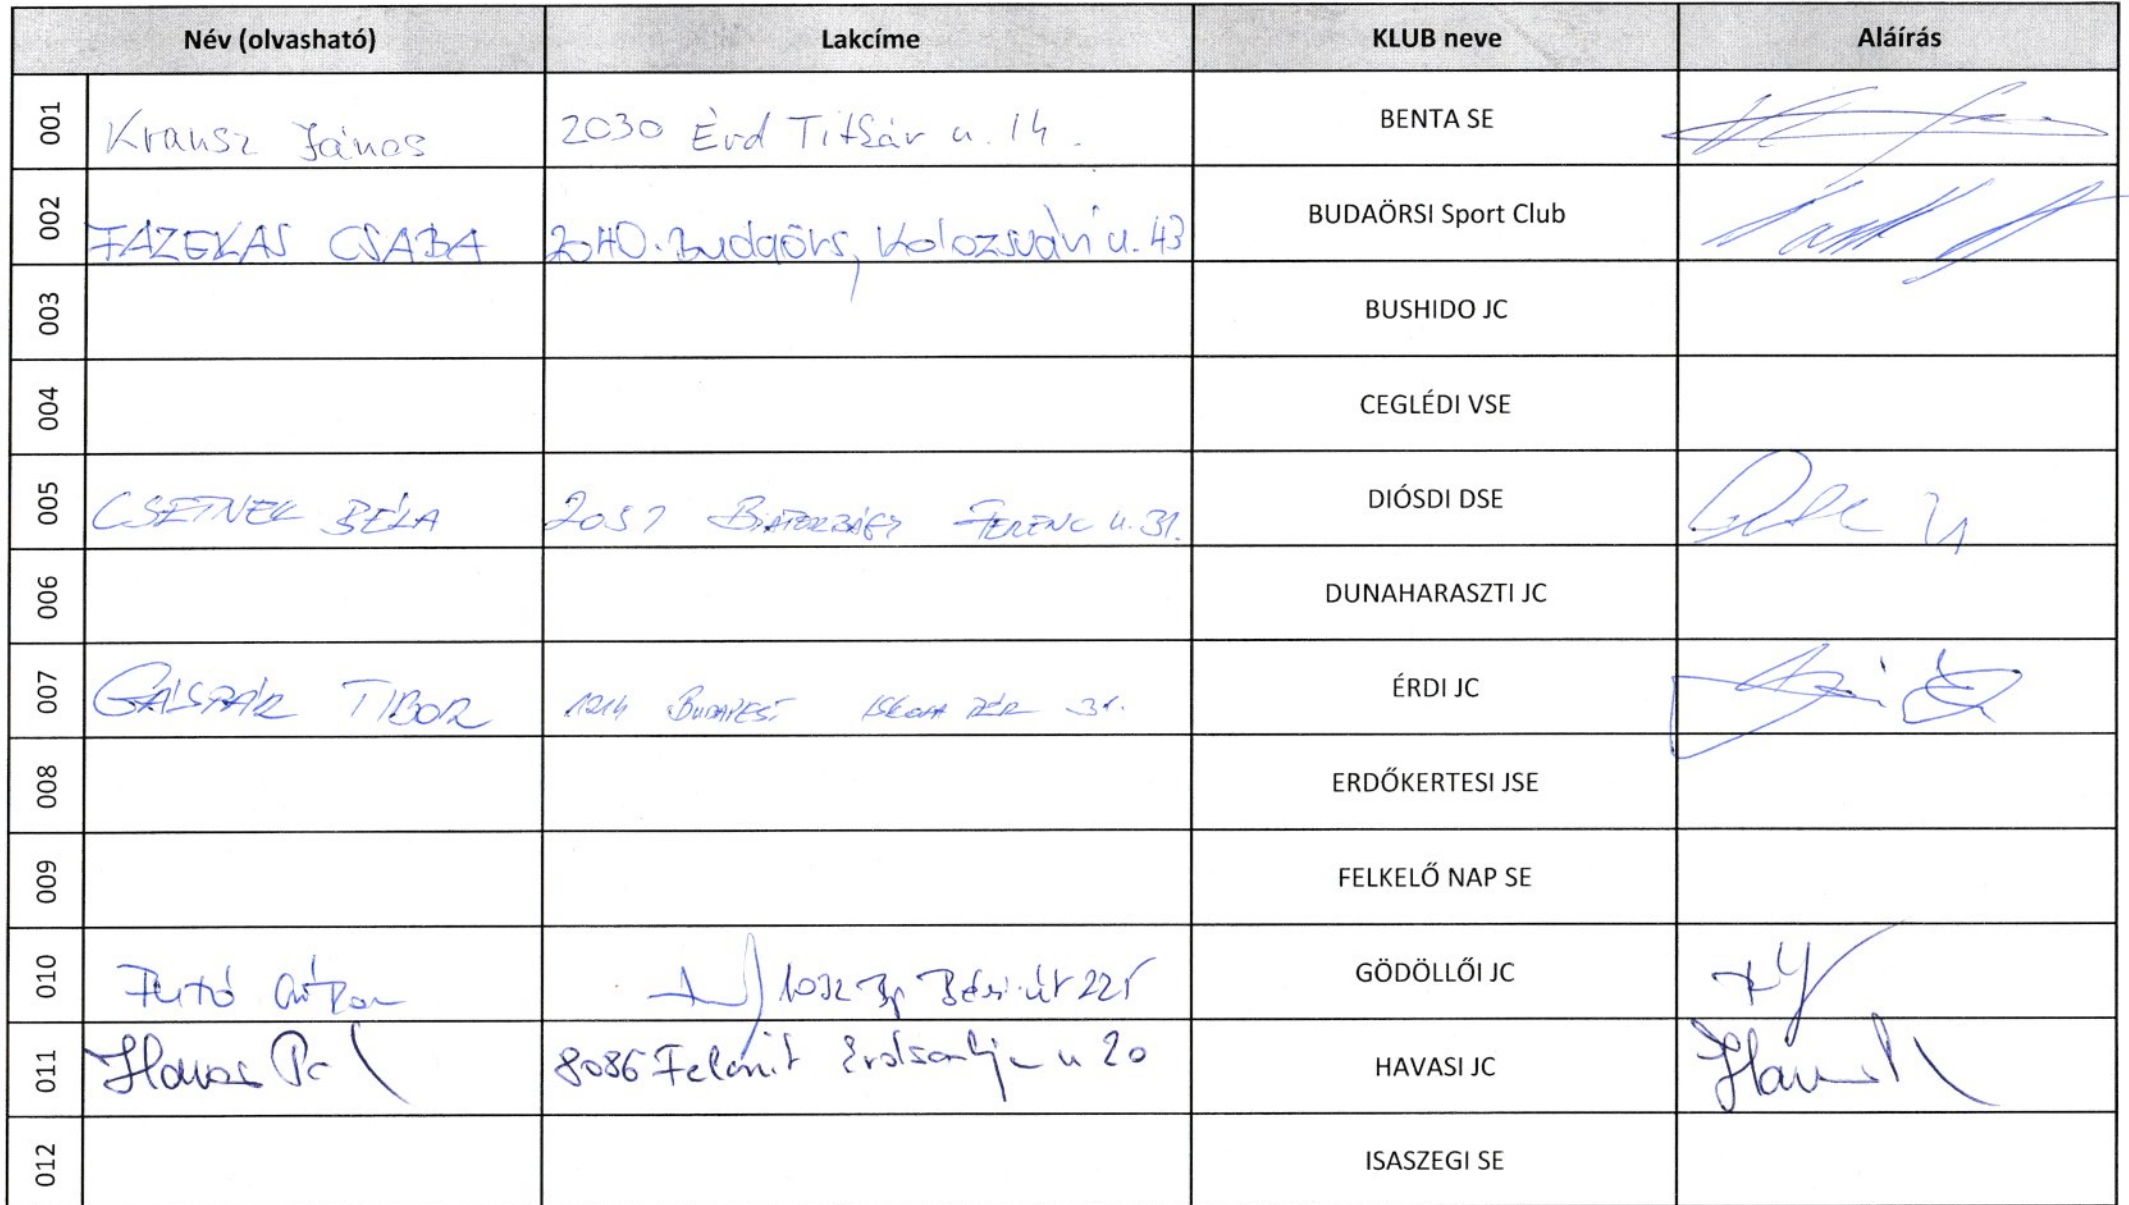 Név (olvasható) Lakcíme KLUB neve Aláírás
001 Krausz János 2030 Érd Titkár u. 14. BENTA SE
002 FAZEKAS CSABA 2040. Budaörs, Kolozsvári u. 43 BUDAÖRSI Sport Club
003 BUSHIDO JC
004 CEGLÉDI VSE
005 CSETNEK BÉLA 2051 BIATORBÁGY FERENC U. 31. DIÓSDI DSE
006 DUNAHARASZTI JC
007 GÁSPÁR TIBOR 1214 BUDAPEST ISKOLA TÉR 31. ÉRDI JC
008 ERDŐKERTESI JSE
009 FELKELŐ NAP SE
010 Futó 1032 Bp Bécsi út 225 GÖDÖLLŐI JC
011 Havas 8086 u 20 HAVASI JC
012 ISASZEGI SE